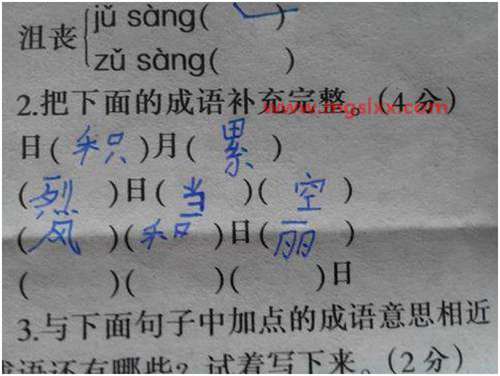 沮丧{jǔ sàng( )
zǔ sàng( )
2.把下面的成语补充完整。(4分)
www.mgslxx.com
日(积)月(累)
(烈)日(当)(空)
(风)(和)日(丽)
( )( )( )日
3.与下面句子中加点的成语意思相近
成语还有哪些?试着写下来。(2分)